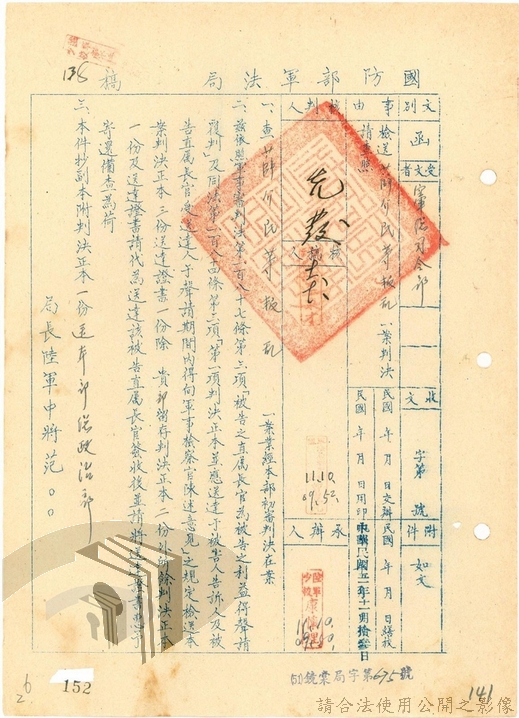 國防部軍法局 稿
文別
函
受文者
軍法司令部
事由
檢送
等叛亂一案判決
請查照
收文
字第 號
附件
如文
民國 年 月 日交辦
民國 年 月 日繕校
民國 年 月 日用印
中華民國五二年十一月拾叁日
核判人
先發
承辦人
11.10.
09.52.
一、查
等叛亂
一案業經本部初審判決在案
二、茲依照軍事審判法第一百八十七條第三項「被告之直屬長官為被告之利益得聲請
覆判」及同法第一百八四條第二項「第一項判決正本並應送達于被害人告訴人及被
告直屬長官受送達人于聲請期間內得向軍事檢察官陳述意見」之規定檢送本
案判決正本三份送達證書一份除 貴部留存判決正本二份外餘判決正本
一份及送達證書請代為送達該被告直屬長官簽收後並請將送達證書擲予
寄還備查為荷
三、本件抄副本附判決正本一份送本部總政治部
局長陸軍中將范○○
字第695號
138
152
141
請合法使用公開之影像